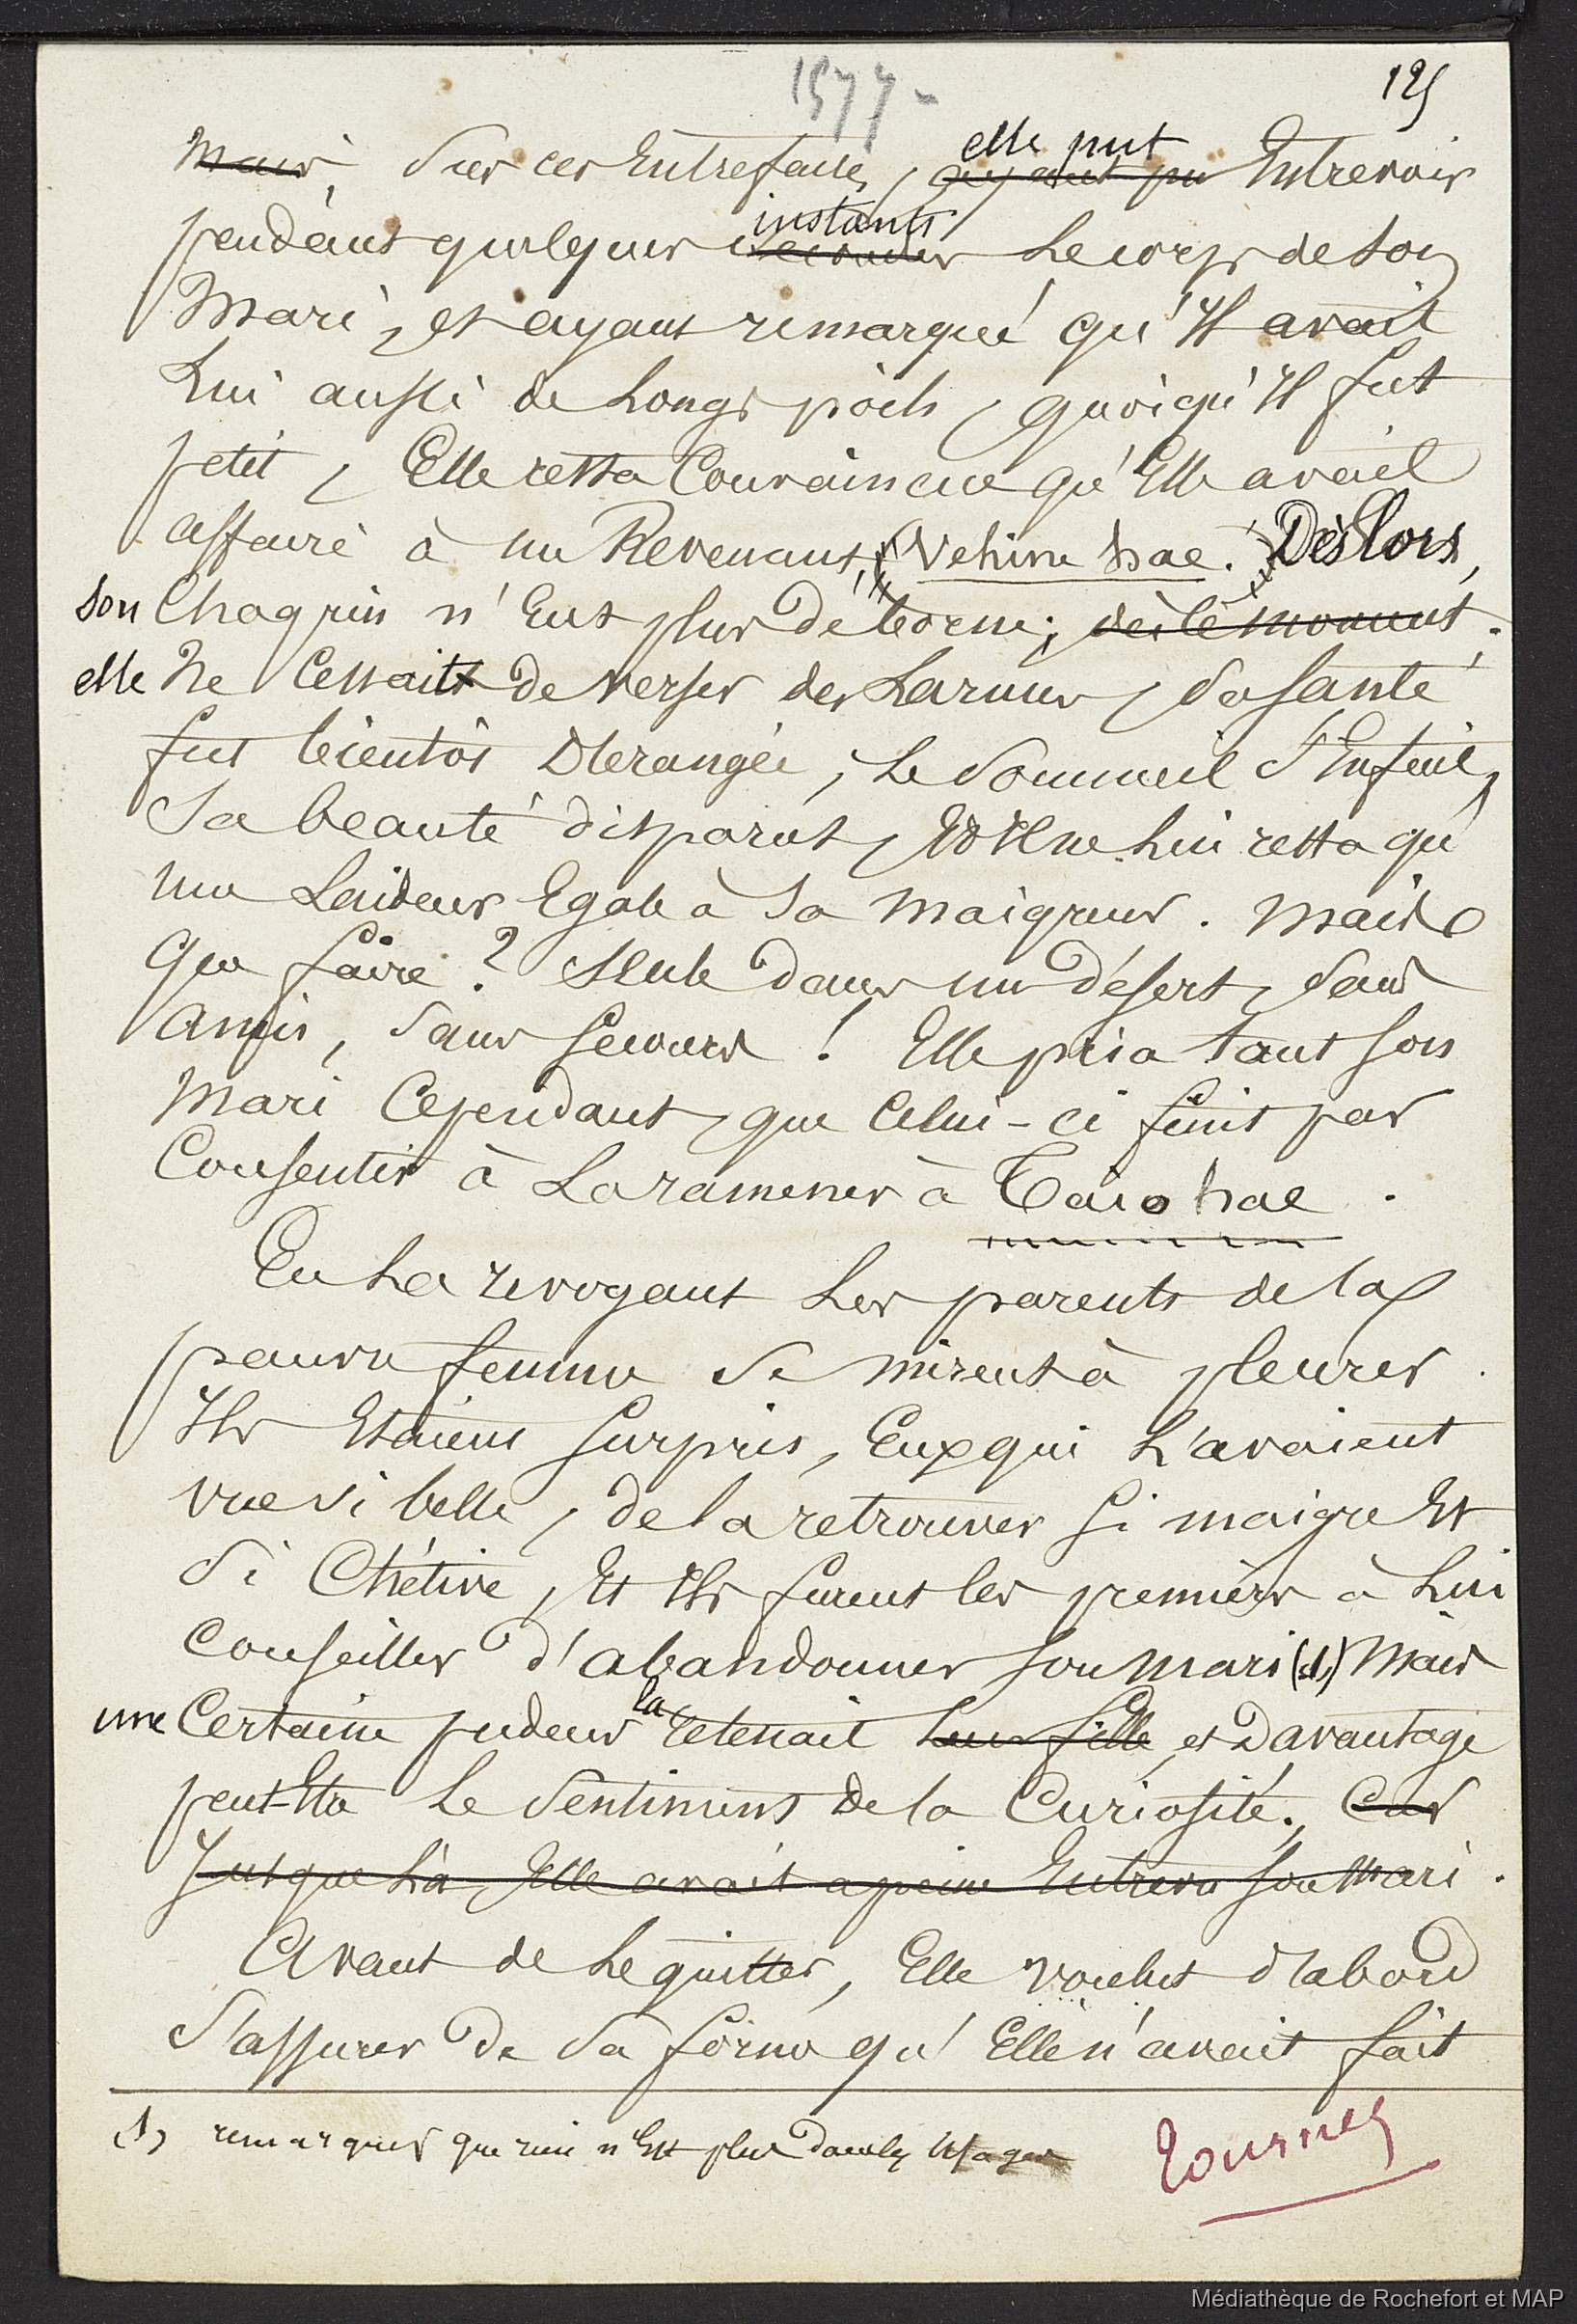 1577-
125
Mais, Sur ces Entrefaites, elle put ayant pu Entrevoir
pendant quelques instants secondes Le corps de son
Mari, et ayant remarqué qu'Il avait
Lui aussi de Longs poils, quoiqu'Il fut
petit, Elle resta Convaincue qu'Elle avait
affaire à un Revenant, (Vehine hae. Dès lors,
son Chagrin n'Eut plus de borne; dès ce moment;
elle Ne Cessait de verser des Larmes, Sa santé
fut bientôt Dérangée, Le Sommeil S'Enfuit,
Sa beauté disparut, Et Il ne Lui resta qu'
une Laideur Egale à Sa Maigreur. Mais
Que faire? Seule dans un désert, Sans
Amis, Sans Secours! Elle pria tant son
Mari Cependant, que Celui-ci finit par
Consentir à La ramener à Taiohae.
En La revoyant Les parents de la
pauvre femme Se mirent à pleurer.
Ils Etaient Surpris, Eux qui L'avaient
vue si belle, de la retrouver Si maigre Et
Si Chétive, Et Ils furent les premiers à Lui
Conseiller d'abandonner son Mari (1) Mais
une Certaine pudeur la retenait leur fille, et Davantage
peut-Etre Le Sentiment de la Curiosité., Car
Jusque là Elle avait a peine Entrevu son Mari.
Avant de Le quitter, Elle voulut d'abord
S'assurer De Sa forme qu'Elle n'avait fait
(1) remarquer que rien n'Est plus dans les Usages
Tournez
Médiathèque de Rochefort et MAP